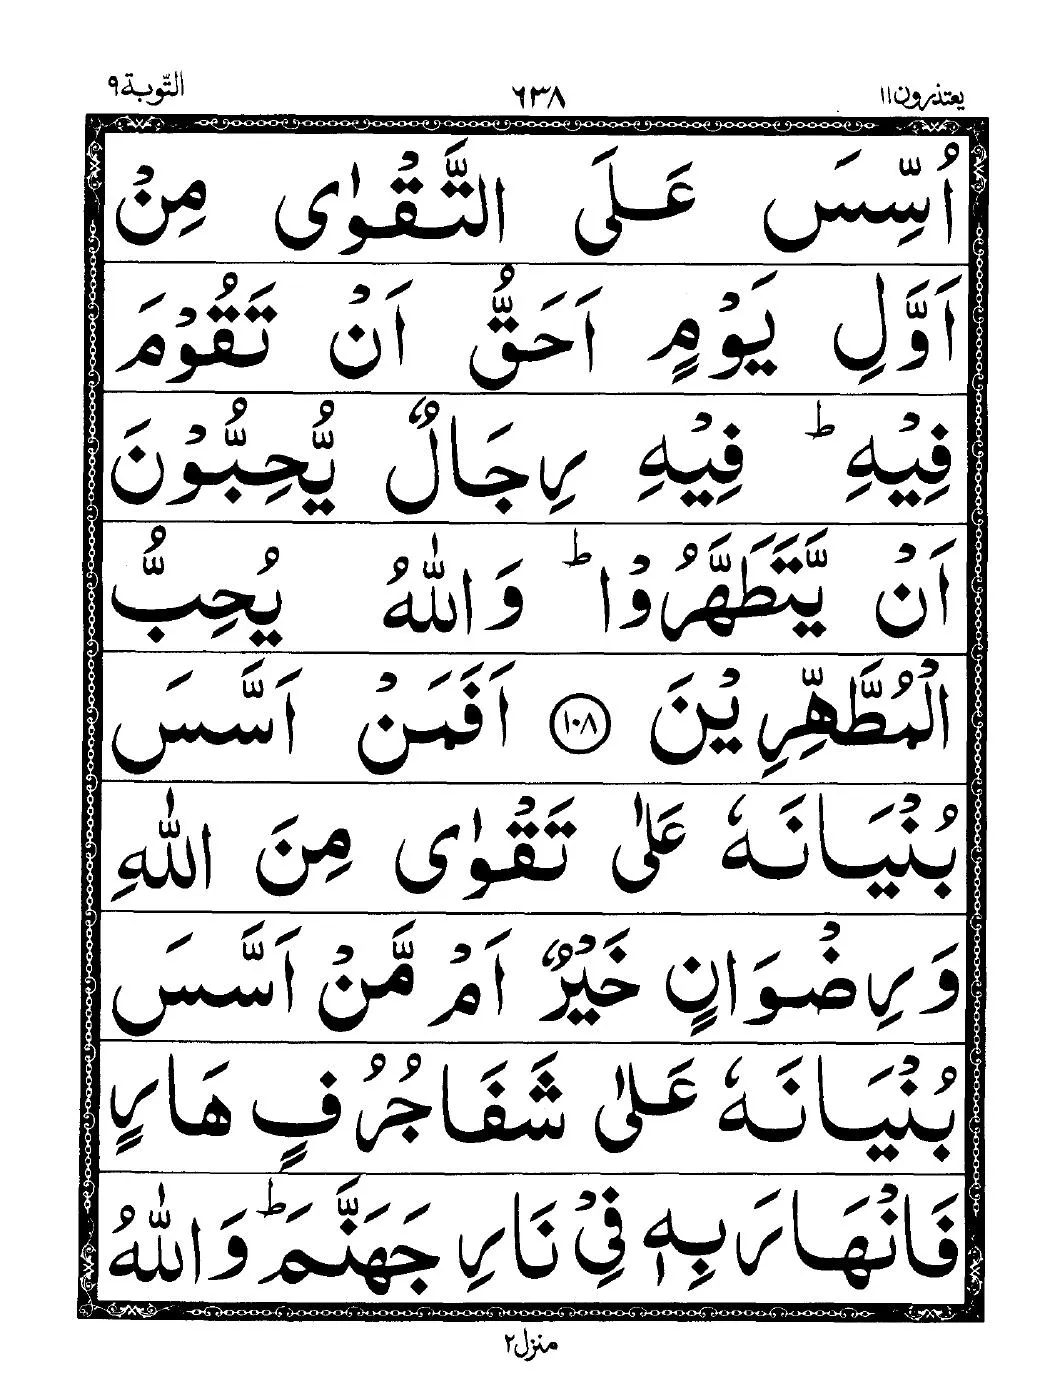 يعتذرون ١١ ٦٣٨ التّوبة ٩
اُسِّسَ عَلَى التَّقْوٰى مِنْ
اَوَّلِ يَوْمٍ اَحَقُّ اَنْ تَقُوْمَ
فِيْهِ ؕ فِيْهِ رِجَالٌ يُّحِبُّوْنَ
اَنْ يَّتَطَهَّرُوْا ؕ وَاللّٰهُ يُحِبُّ
الْمُطَّهِّرِيْنَ ١٠٨ اَفَمَنْ اَسَّسَ
بُنْيَانَهٗ عَلٰى تَقْوٰى مِنَ اللّٰهِ
وَرِضْوَانٍ خَيْرٌ اَمْ مَّنْ اَسَّسَ
بُنْيَانَهٗ عَلٰى شَفَا جُرُفٍ هَارٍ
فَانْهَارَ بِهٖ فِيْ نَارِ جَهَنَّمَ ؕ وَاللّٰهُ
منزل ٢